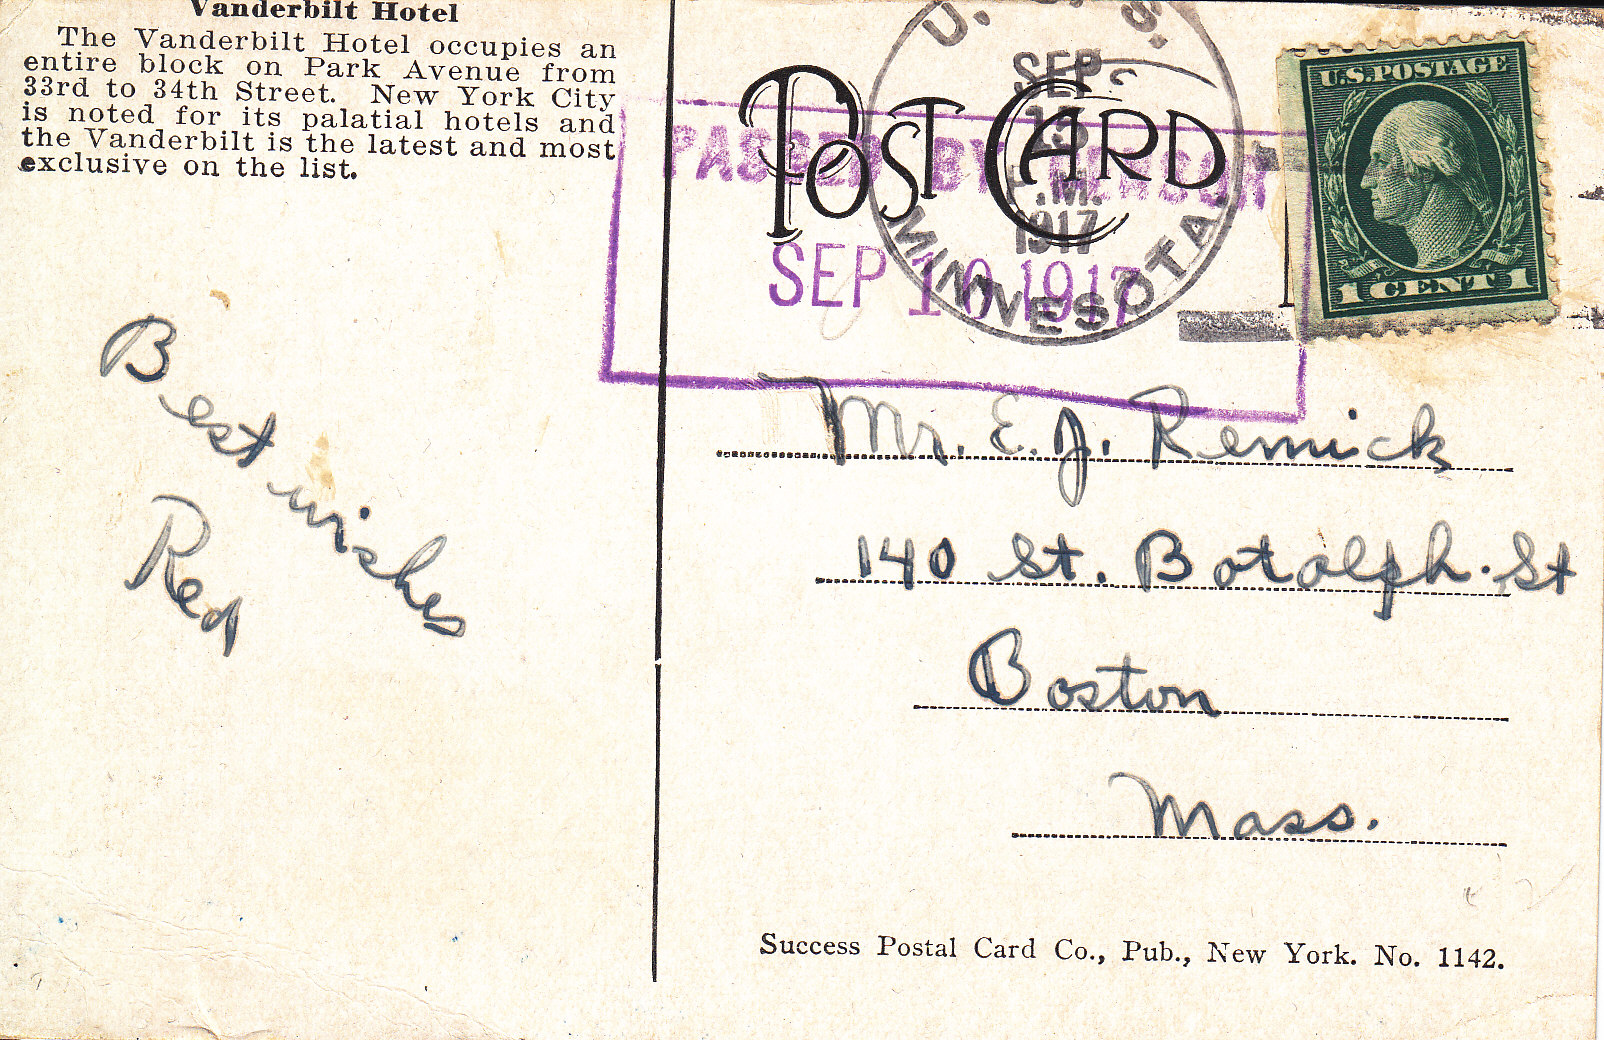 Vanderbilt Hotel
The Vanderbilt Hotel occupies an
entire block on Park Avenue from
33rd to 34th Street. New York City
is noted for its palatial hotels and
the Vanderbilt is the latest and most
exclusive on the list.
POST CARD
PASSED BY CENSOR
SEP 10 1917
U. S. S.
SEP
13
.M.
1917
MINNESOTA.
U.S. POSTAGE
1 CENT 1
Best wishes
Red
Mr. E. J. Remick
140 St. Botolph. St
Boston
Mass.
Success Postal Card Co., Pub., New York. No. 1142.